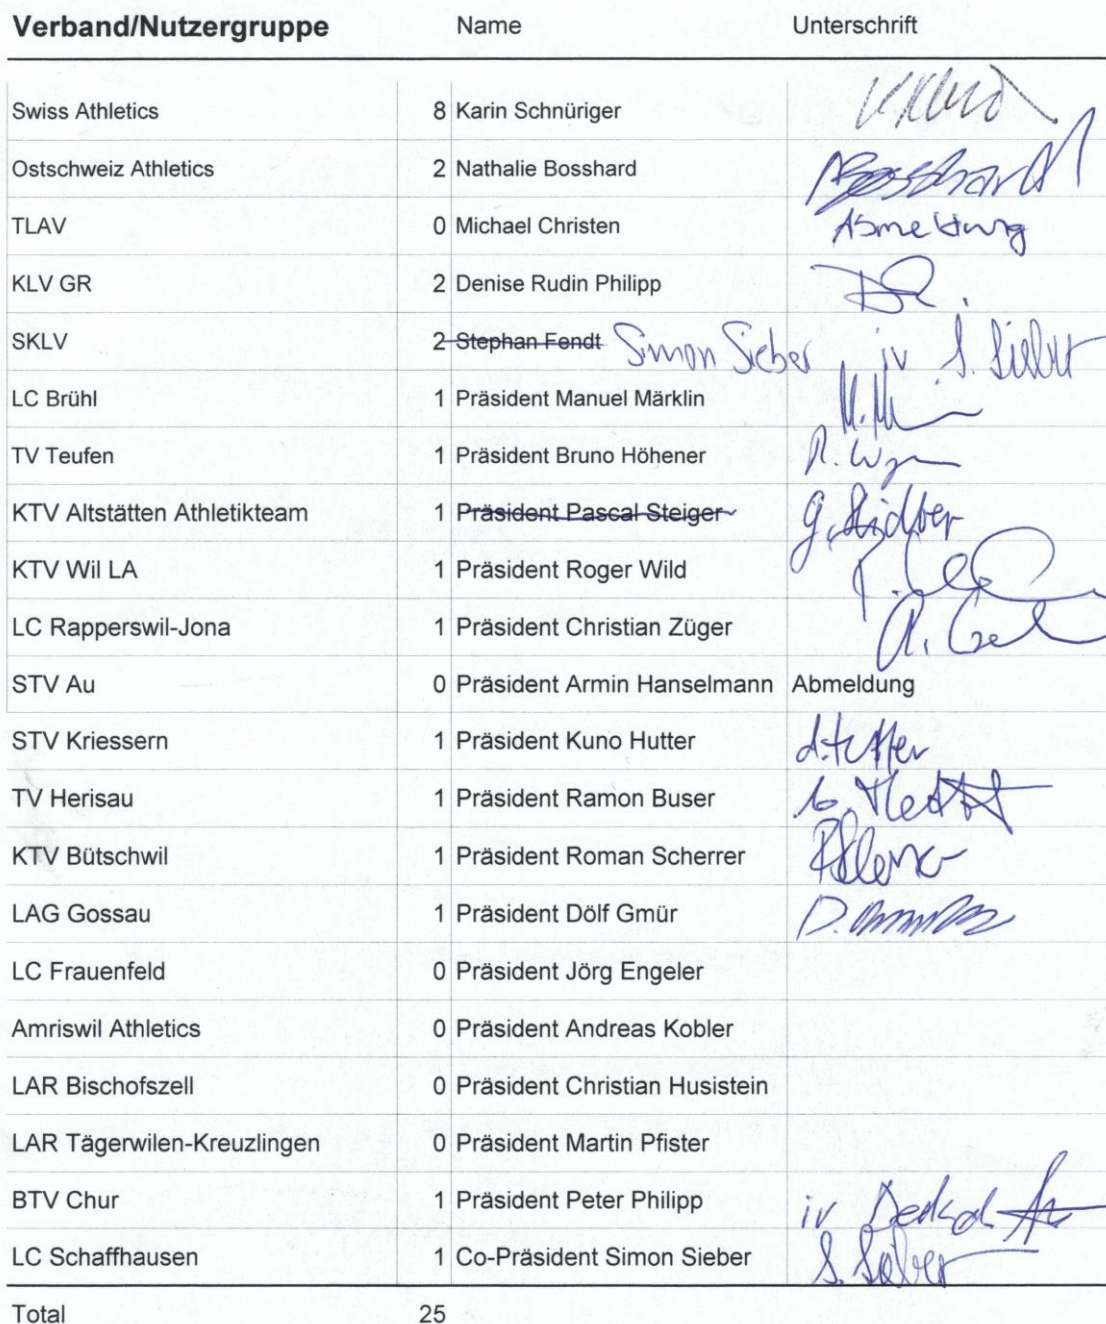 Verband/Nutzergruppe Name Unterschrift
Swiss Athletics 8 Karin Schnüriger
Ostschweiz Athletics 2 Nathalie Bosshard NBosshard
TLAV 0 Michael Christen Abmeldung
KLV GR 2 Denise Rudin Philipp
SKLV 2 Stephan Fendt Simon Sieber iv S. Sieber
LC Brühl 1 Präsident Manuel Märklin
TV Teufen 1 Präsident Bruno Höhener
KTV Altstätten Athletikteam 1 Präsident Pascal Steiger
KTV Wil LA 1 Präsident Roger Wild
LC Rapperswil-Jona 1 Präsident Christian Züger
STV Au 0 Präsident Armin Hanselmann Abmeldung
STV Kriessern 1 Präsident Kuno Hutter
TV Herisau 1 Präsident Ramon Buser
KTV Bütschwil 1 Präsident Roman Scherrer
LAG Gossau 1 Präsident Dölf Gmür
LC Frauenfeld 0 Präsident Jörg Engeler
Amriswil Athletics 0 Präsident Andreas Kobler
LAR Bischofszell 0 Präsident Christian Husistein
LAR Tägerwilen-Kreuzlingen 0 Präsident Martin Pfister
BTV Chur 1 Präsident Peter Philipp iv
LC Schaffhausen 1 Co-Präsident Simon Sieber S. Sieber
Total 25